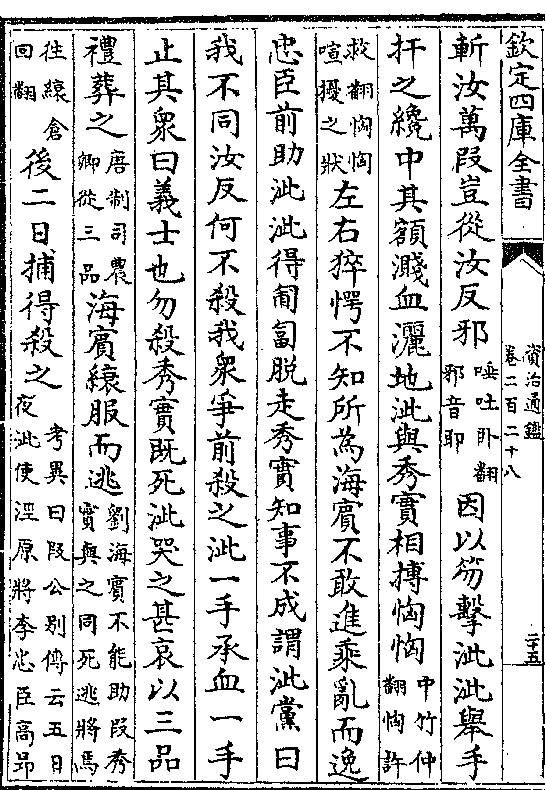 欽定四庫全書
資治通鑑
卷二百二十八
二十五
斬汝萬段豈從汝反邪唾吐卧翻邪音耶因以笏擊泚泚舉手
扞之纔中其額濺血灑地泚與秀實相搏恟恟中竹仲翻恟許
救翻恟恟喧擾之狀左右猝愕不知所為海賓不敢進乘亂而逸
忠臣前助泚泚得匍匐脱走秀實知事不成謂泚黨曰
我不同汝反何不殺我衆爭前殺之泚一手承血一手
止其衆曰義士也勿殺秀實既死泚哭之甚哀以三品
禮葬之唐制司農卿從三品海賓縗服而逃劉海賓不能助段秀實與之同死逃將焉
往縗倉回翻後二日捕得殺之考異曰段公别傳云五日夜泚使涇原將李忠臣高昂